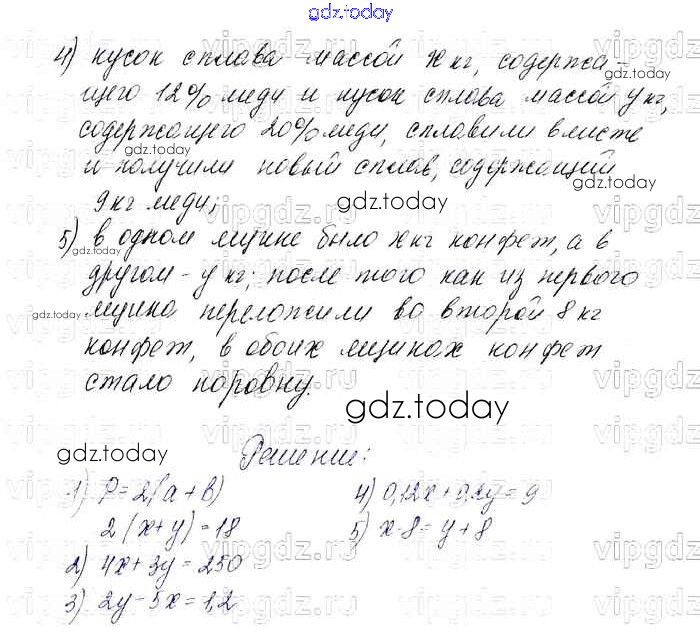 gdz.today
4) кусок сплава массой x кг, содержа-
щего 12% меди и кусок сплава массой y кг,
содержащего 20% меди, сплавили вместе
и получили новый сплав, содержащий
9 кг меди;
5) в одном ящике было x кг конфет, а в
другом - y кг; после того как из первого
ящика переложили во второй 8 кг
конфет, в обоих ящиках конфет
стало поровну.
gdz.today
Решение:
1) P = 2(a + b)
2(x + y) = 18
2) 4x + 3y = 250
3) 2y - 5x = 1,2
4) 0,12x + 0,2y = 9
5) x - 8 = y + 8